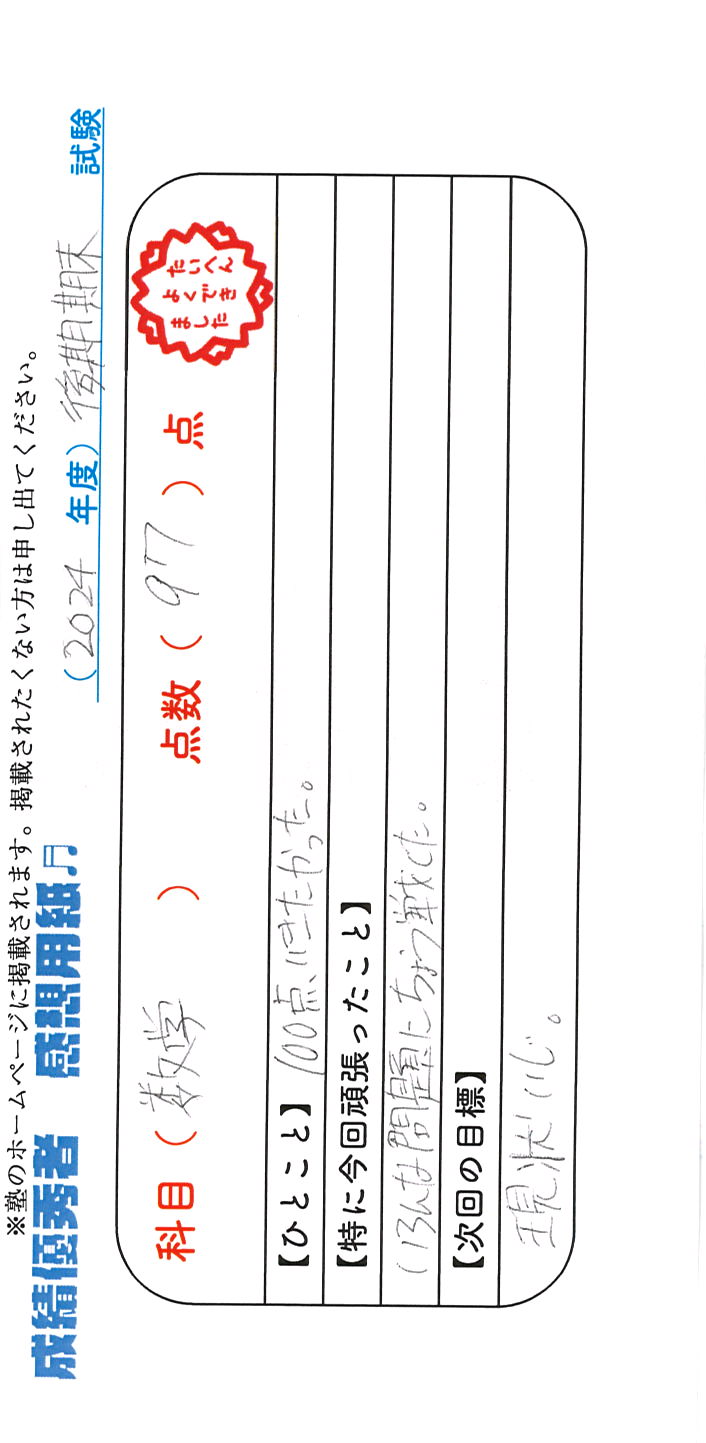 ※塾のホームページに掲載されます。掲載されたくない方は申し出てください。
成績優秀者 感想用紙♬
(2024 年度) 後期期末 試験
科目 ( 数学 ) 点数 ( 97 ) 点
たいへん
よくでき
ました
【ひとこと】 100点いきたかった。
【特に今回頑張ったこと】
いろんな問題にちょう戦した。
【次回の目標】
現状いじ。